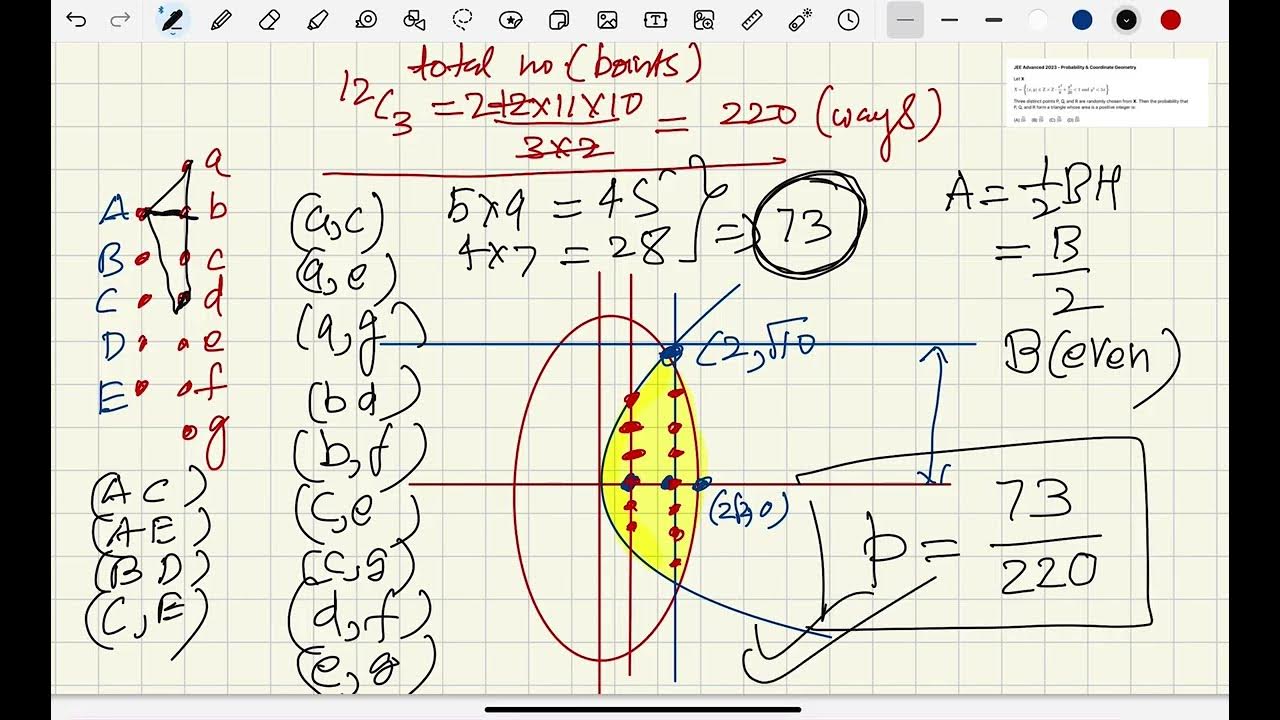 total no. (points)
12C3 = 2 12×11×10 / 3×2 = 220 (ways)
JEE Advanced 2023 - Probability & Coordinate Geometry
Let X
Three distinct points P, Q, and R are randomly chosen from X. Then the probability that
P, Q, and R form a triangle whose area is a positive integer is:
a
A b
B c
C d
D e
E f
g
(A C)
(A E)
(B D)
(C, E)
(a,c)
(a,e)
(a,g)
(b d)
(b,f)
(c,e)
(c,g)
(d,f)
(e,g)
5×9 = 45
4×7 = 28
} => 73
A = 1/2 BH
= B/2
B(even)
(2,√10
(2√2,0)
p = 73/220